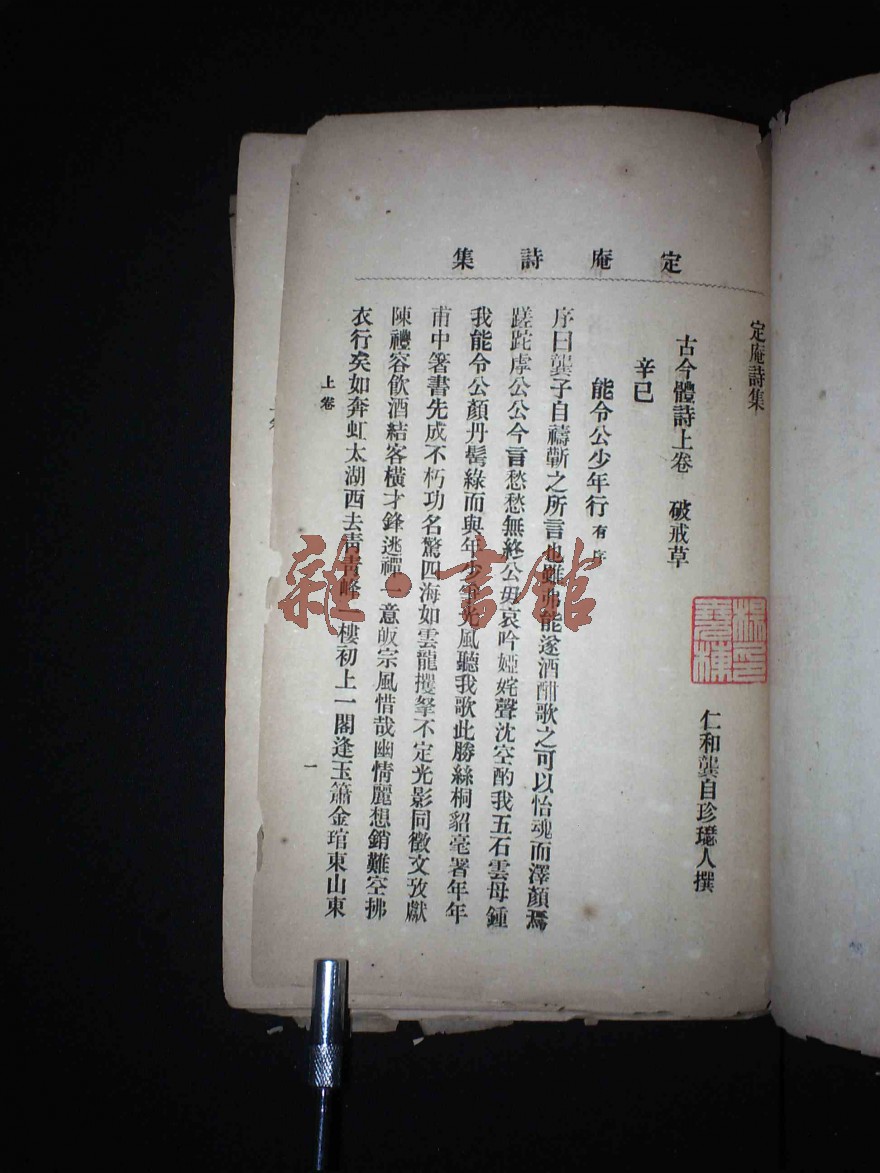 定庵詩集
定庵詩集
古今體詩上卷 破戒草
仁和龔自珍璱人撰
辛巳
能令公少年行 有序
序曰龔子自禱蘄之所言也雖弗能遂酒酣歌之可以怡魂而澤顏焉
蹉跎虖公公今言愁愁無終公毋哀吟婭姹聲沈空酌我五石雲母鍾
我能令公顏丹鬢綠而與年少爭光風聽我歌此勝絲桐貂毫署年年
甫中箸書先成不朽功名驚四海如雲龍攫拏不定光影同徵文攷獻
陳禮容飲酒結客橫才鋒逃禪一意皈宗風惜哉幽情麗想銷難空拂
衣行矣如奔虹太湖西去青青峰一樓初上一閣逢玉簫金琯東山東
上卷
一
雜·書館